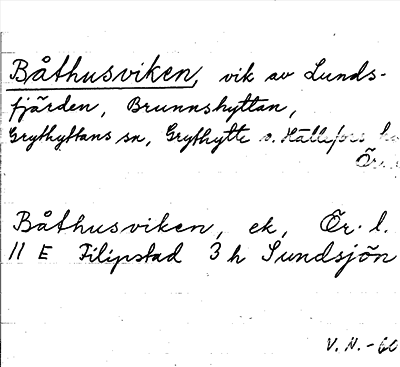 Båthusviken, vik av Lunds-
fjärden, Brunnshyttan,
Grythyttans sn, Grythytte o. Hällefors
Ör.
Båthusviken, ek, Ör. l.
11 E Filipstad 3 h Sundsjön
V. N. -60